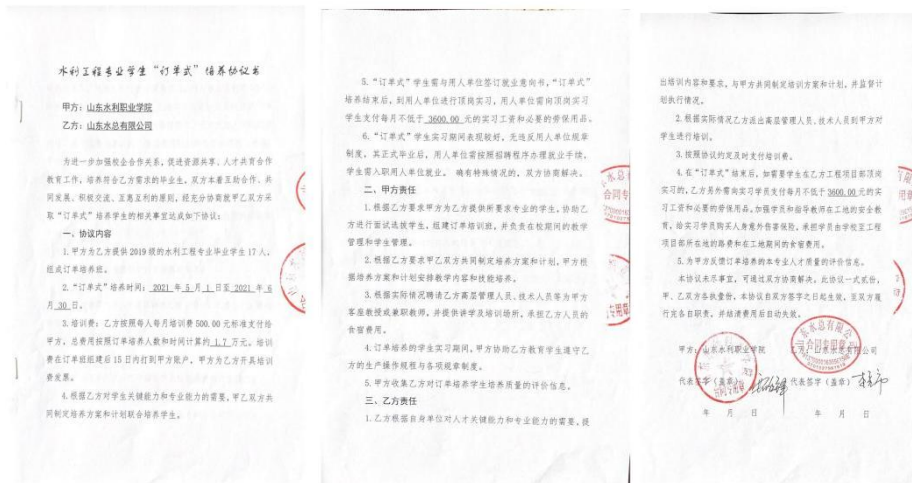 水利工程专业学生“订单式”培养协议书
甲方：山东水利职业学院
乙方：山东水总有限公司
为进一步加强校企合作关系，促进资源共享、人才共育合作
教育工作，培养符合乙方需求的毕业生。双方本着互助合作、共
同发展、积极交流、互惠互利的原则，经充分协商就甲乙双方采
取“订单式”培养学生的相关事宜达成如下协议：
一、协议内容
1.甲方为乙方提供2019级的水利工程专业毕业学生17人，
组成订单培养班。
2.“订单式”培养时间：2021年5月1日至2021年6
月30日。
3.培训费：乙方按照每人每月培训费500.00元标准支付给
甲方，总费用按照订单培养人数和时间计算的1.7万元。培训
费在订单班组建后15日内打到甲方账户。甲方为乙方开具培训
费发票。
4.根据乙方对学生关键能力和专业能力的需要，甲乙双方共
同制定培养方案和计划联合培养学生。
5.“订单式”学生需与用人单位签订就业意向书，“订单式”
培养结束后，到用人单位进行顶岗实习，用人单位需向顶岗实习
学生支付每月不低于3600.00元的实习工资和必要的劳保用品。
6.“订单式”学生实习期间表现较好，无违反用人单位规章
制度，其正式毕业后，用人单位需按照招聘程序办理就业手续，
学生需入职用人单位就业。确有特殊情况的，双方协商解决。
二、甲方责任
1.根据乙方要求甲方为乙方提供所要求专业的学生，协助乙
方进行面试选拔学生，组建订单培训班，并负责在校期间的教学
管理和学生管理。
2.根据乙方要求甲乙双方共同制定培养方案和计划，甲方根
据培养方案和计划安排教学内容和技能培养。
3.根据实际情况聘请乙方高层管理人员、技术人员等为甲方
客座教授或兼职教师，并提供讲学及培训场所，承担乙方人员的
食宿费用。
4.订单培养的学生实习期间，甲方协助乙方教育学生遵守乙
方的生产操作规程与各项规章制度。
5.甲方收集乙方对订单培养学生培养质量的评价信息。
三、乙方责任
1.乙方根据自身单位对人才关键能力和专业能力的需要，提
出培训内容和要求，与甲方共同制定培训方案和计划，并监督计
划执行情况。
2.根据实际情况乙方派出高层管理人员、技术人员到甲方对
学生进行培训。
3.按照协议约定及时支付培训费。
4.在“订单式”结束后，如需要学生在乙方工程项目部顶岗
实习的，乙方另外需向实习学员支付每月不低于3600.00元的实
习工资和必要的劳保用品。加强学员和指导教师在工地的安全教
育，给实习学员购买人身意外伤害保险，承担学员由学校至工程
项目部所在地的路费和在工地期间的食宿费用。
5.为甲方反馈订单培养的本专业人才质量的评价信息。
本协议未尽事宜，可通过双方协商解决。此协议一式贰份，
甲、乙双方各执壹份，本协议自双方签字之日起生效，至双方履
行完各自职责，并结清费用后自动失效。
甲方：山东水利职业学院 乙方：山东水总有限公司
代表签字（盖章） 代表签字（盖章）
年 月 日 年 月 日
合同专用章